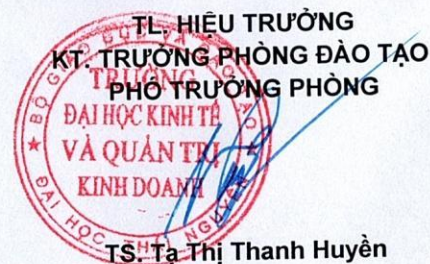 TL. HIỆU TRƯỞNG
KT. TRƯỞNG PHÒNG ĐÀO TẠO
PHÓ TRƯỞNG PHÒNG
TRƯỜNG
ĐẠI HỌC KINH TẾ
VÀ QUẢN TRỊ
KINH DOANH
TS. Tạ Thị Thanh Huyền